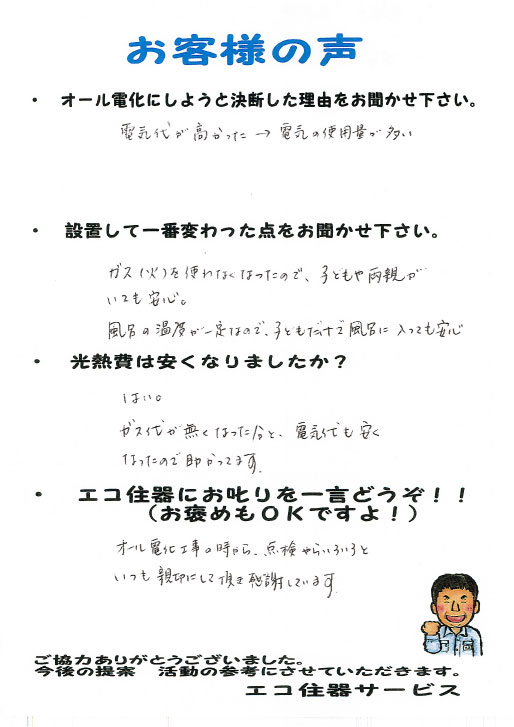 お客様の声
・ オール電化にしようと決断した理由をお聞かせ下さい。
電気代が高かった → 電気の使用量が多い
・ 設置して一番変わった点をお聞かせ下さい。
ガス(火)を使わなくなったので、子どもや両親が
いても安心。
風呂の温度が一定なので、子どもだけで風呂に入っても安心
・ 光熱費は安くなりましたか？
はい。
ガス代が無くなった分と、電気代も安く
なったので助かってます。
・ エコ住器にお叱りを一言どうぞ！！
（お褒めもＯＫですよ！）
オール電化工事の時から、点検やらいろいろと
いつも親切にして頂き感謝しています。
ご協力ありがとうございました。
今後の提案 活動の参考にさせていただきます。
エコ住器サービス